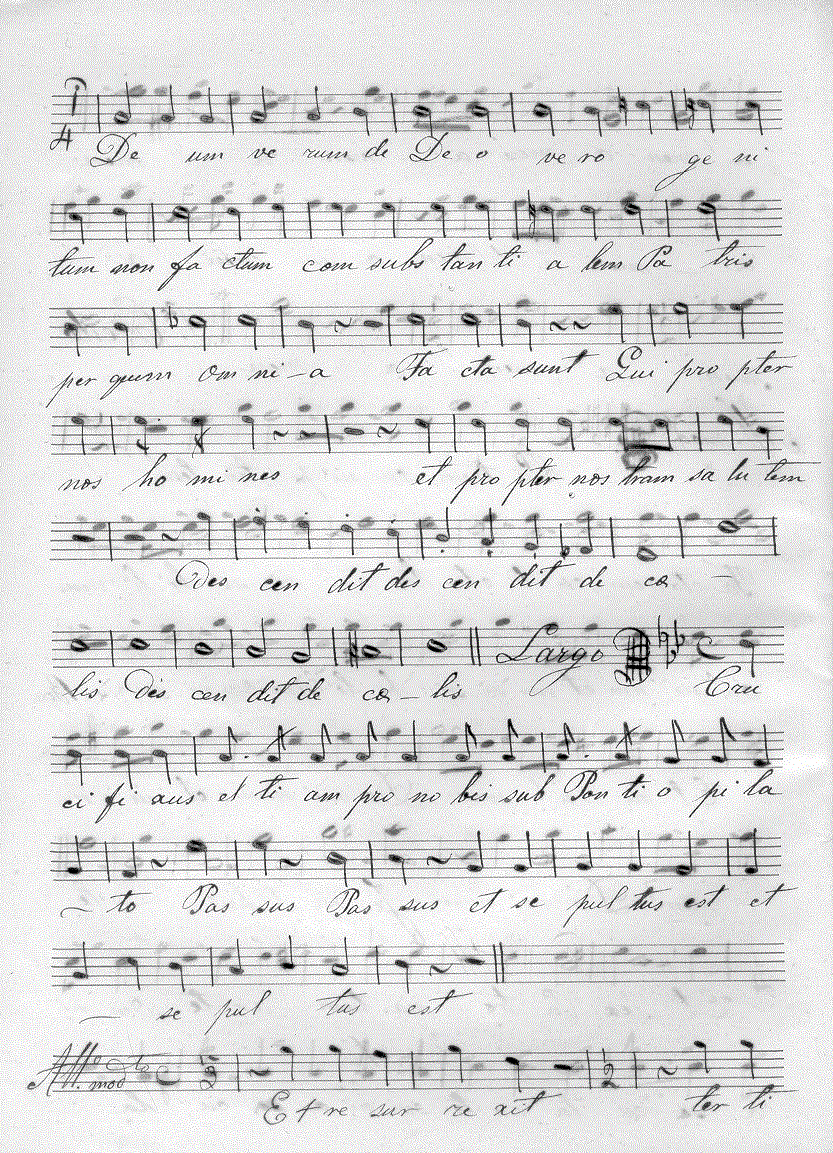 De um ve rum de De o ve ro ge ni
tum non fa ctum com subs tan ti a lem Pa tris
per quem om ni - a Fa cta sunt Qui pro pter
nos ho mi nes et pro pter nos tram sa lu tem
Des cen dit des cen dit de cœ -
lis Des cen dit de cœ - lis Largo Cru
ci fi xus et ti am pro no bis sub Pon ti o pi la
- to Pas sus Pas sus et se pul tus est et
- se pul tus est
All.º mod.to E t re sur re xit ter ti